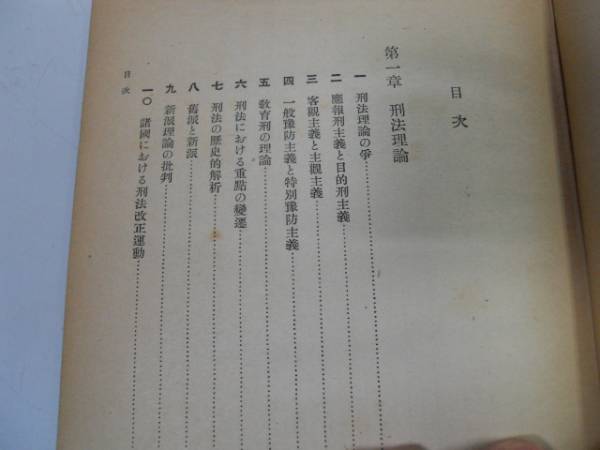 目次
第一章 刑法理論
一 刑法理論の爭
二 應報刑主義と目的刑主義
三 客觀主義と主觀主義
四 一般豫防主義と特別豫防主義
五 敎育刑の理論
六 刑法における重點の變遷
七 刑法の歷史的解析
八 舊派と新派
九 新派理論の批判
一〇 諸國における刑法改正運動
目次